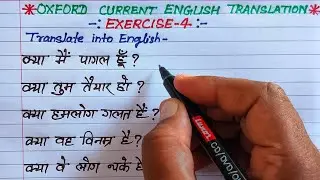 *OXFORD CURRENT ENGLISH TRANSLATION*
-: EXERCISE-4 :-
Translate into English-
क्या मैं पागल हूँ ?
क्या तुम तैयार हो ?
क्या हमलोग गलत हैं ?
क्या वह विनम्र है ?
क्या वे लोग थके हैं
CD/DVD/O